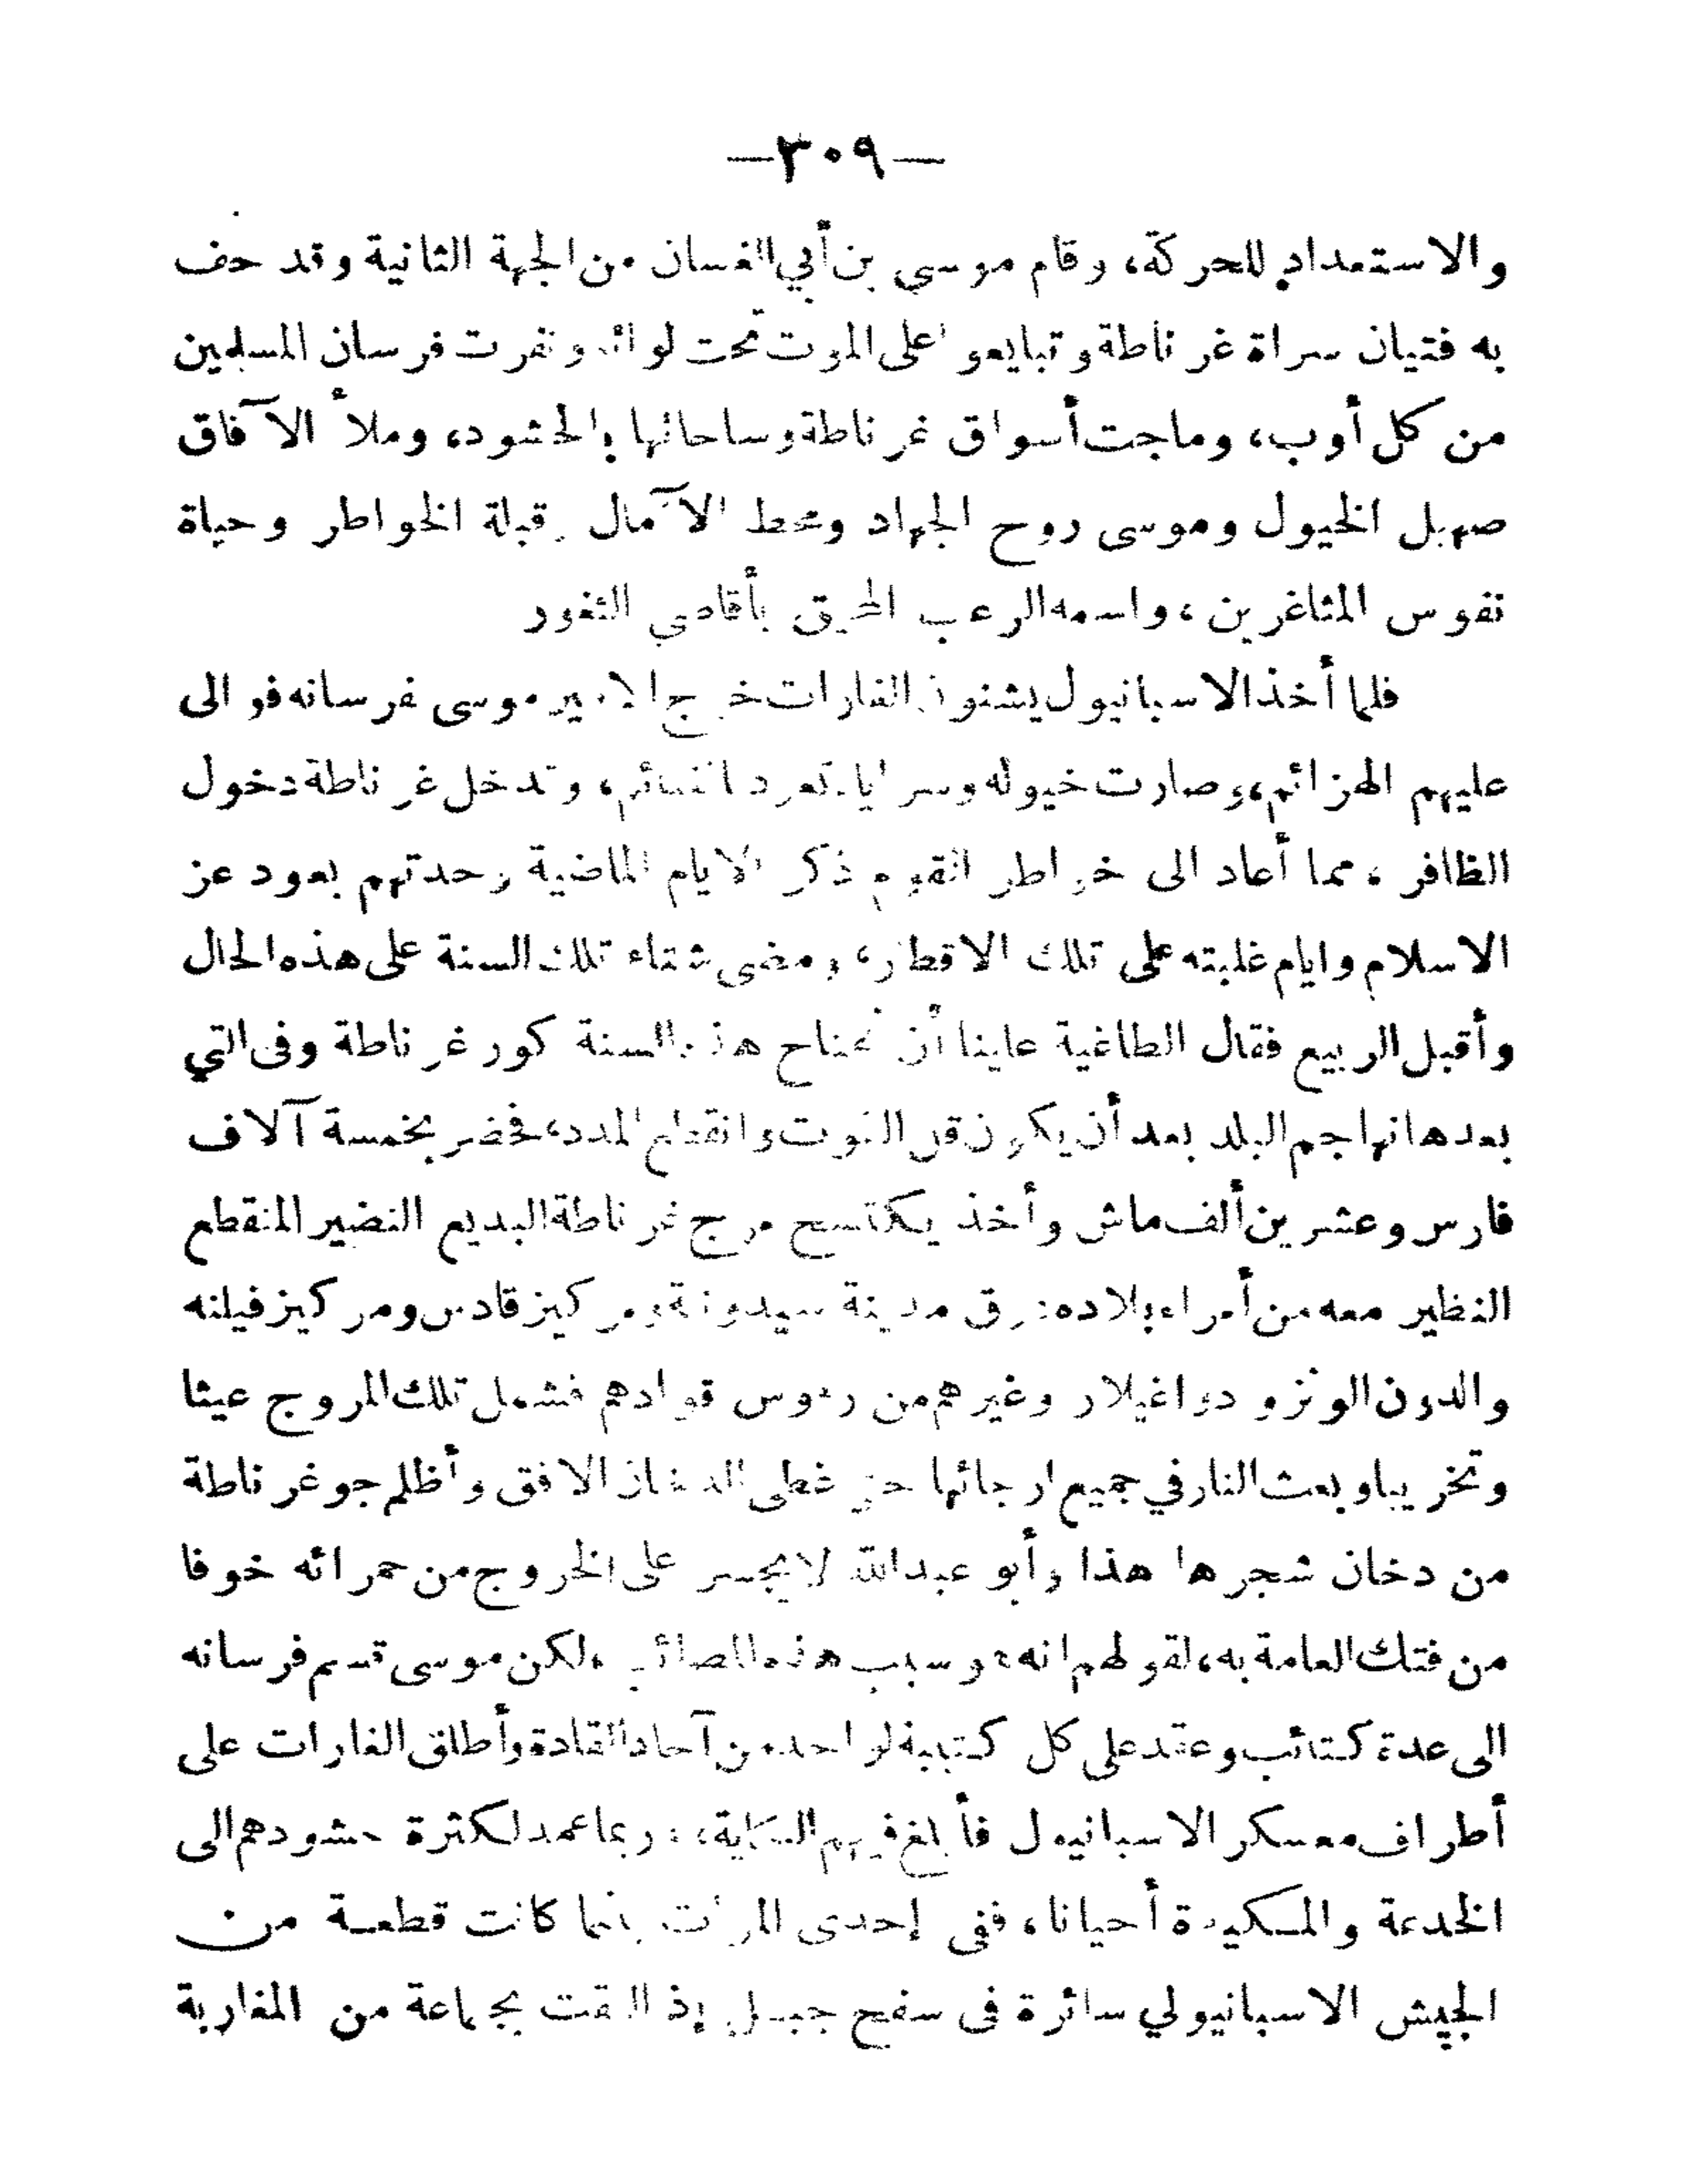 —٣٠٩—
والاستعداد للحركة، وقام موسى بن أبي الغسان من الجهة الثانية وقد حف
به فتيان سراة غرناطة وتبايعوا على الموت تحت لوائه ونفرت فرسان المسلمين
من كل أوب، وماجت أسواق غرناطة وساحاتها بالحشود، وملأ الآفاق
صهيل الخيول وموسى روح الجهاد ومحط الآمال وقبلة الخواطر وحياة
نفوس المثاغرين، واسمه الرعب المحيق بأقاصي الثغور
فلما أخذ الاسبانيول يشنون الغارات خرج الامير موسى بفرسانه فوالى
عليهم الهزائم، وصارت خيوله وسراياه تعود بالغنائم، وتدخل غرناطة دخول
الظافر، مما أعاد الى خواطر القوم ذكر الايام الماضية وحدثهم بعود عز
الاسلام وايام غلبته على تلك الاقطار، ومضى شتاء تلك السنة على هذه الحال
وأقبل الربيع فقال الطاغية علينا أن نجتاح هذه السنة كور غرناطة وفى التي
بعدها نهاجم البلد بعد أن يكون قل القوت وانقطع المدد، فحضر بخمسة آلاف
فارس وعشرين ألف ماش وأخذ يكتسح مرج غرناطة البديع النضير المنقطع
النظير معه من أمراء بلاده: دوق مدينة سيدونة ومركيز قادس ومركيز فيلنه
والدون الونزو دو اغيلار وغيرهم من رءوس قوادهم فشمل تلك المروج عيثا
وتخريبا وبعث النار في جميع ارجائها حتى غطى الدخان الافق وأظلم جو غرناطة
من دخان شجرها هذا وأبو عبدالله لا يجسر على الخروج من حمرائه خوفا
من فتك العامة به، لقولهم انه هو سبب هذه المصائب ولكن موسى قسم فرسانه
الى عدة كتائب وعقد على كل كتيبة لواحد من آحاد القادة وأطلق الغارات على
أطراف معسكر الاسبانيول فأبلغ فيهم النكاية، وربما عمد لكثرة حشودهم الى
الخدعة والمكيدة أحيانا، ففى إحدى المرات بينما كانت قطعة من
الجيش الاسبانيولي سائرة فى سفح جبل إذ التقت بجماعة من المغاربة